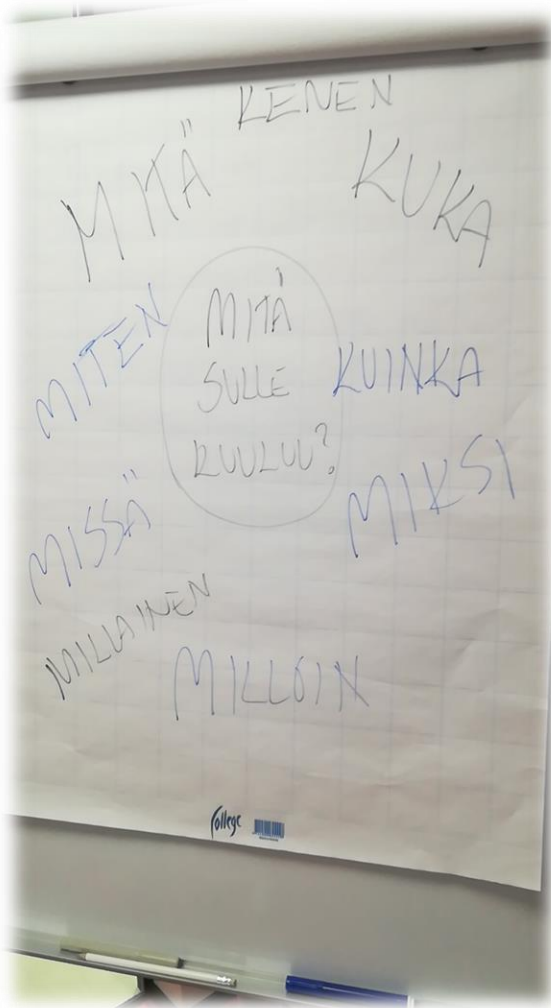 KENEN
MITÄ
KUKA
MITEN
MITÄ
SULLE
KUULUU?
KUINKA
MIKSI
MISSÄ
MILLAINEN
MILLOIN
College